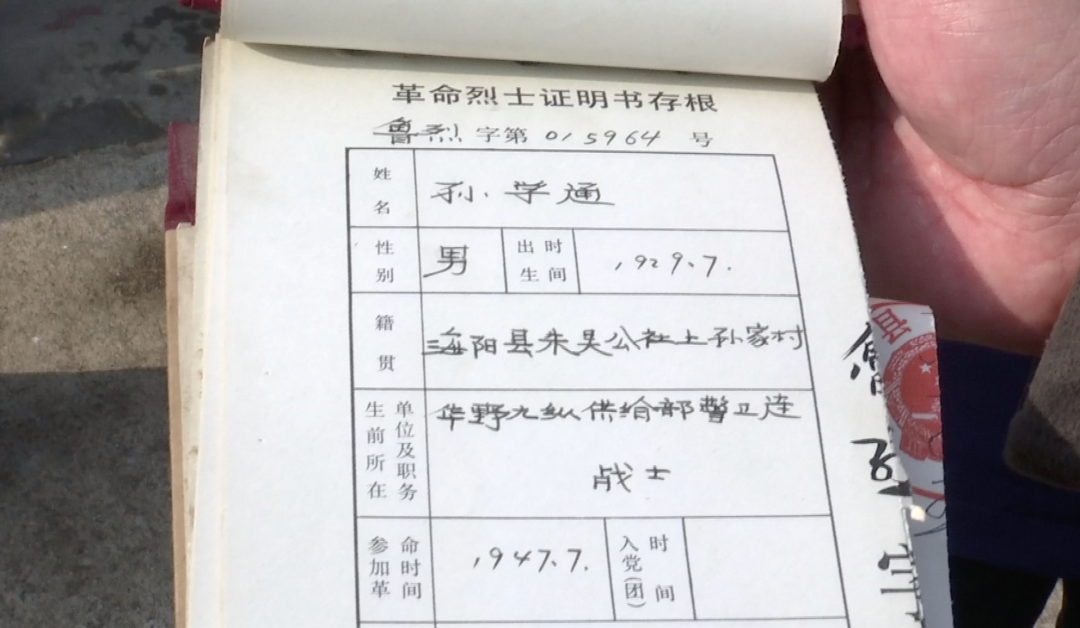 革命烈士证明书存根
鲁烈字第 015964 号
姓名 孙学通
性别 男 出生时间 1929.7.
籍贯 海阳县朱吴公社上孙家村
生前所在单位及职务 华野九纵供给部警卫连
战士
参加革命时间 1947.7. 入党(团)时间
鲁
烈
字